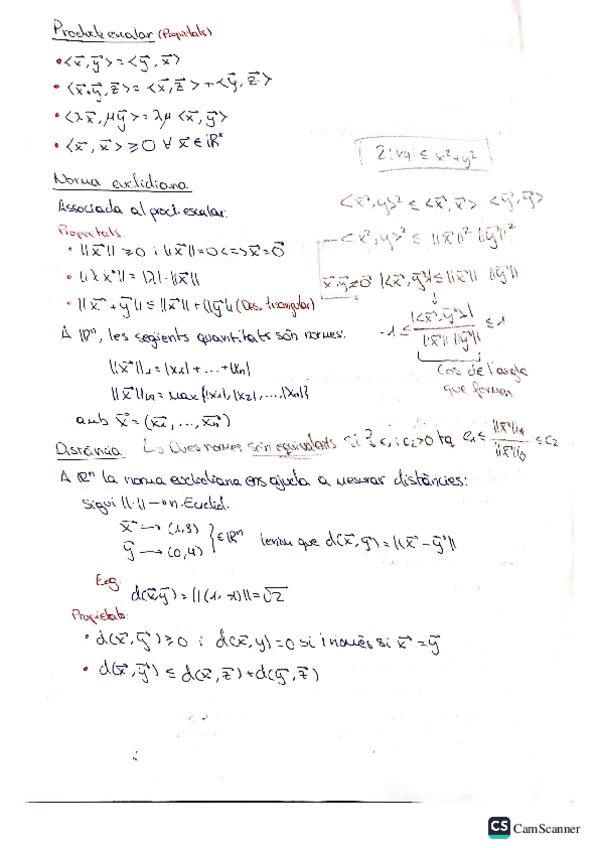 Producte escalar (Propietats)
• <x⃗, y⃗> = <y⃗, x⃗>
• <x⃗+y⃗, z⃗> = <x⃗, z⃗> + <y⃗, z⃗>
• <λx⃗, μy⃗> = λμ <x⃗, y⃗>
• <x⃗, x⃗> ≥ 0 ∀ x⃗ ∈ ℝⁿ
≤ x²+y²
Norma euclidiana
Associada al prod. escalar.
Propietats:
• ||x⃗|| ≥ 0 i ||x⃗|| = 0 <=> x⃗ = 0⃗
• ||λx⃗|| = |λ|·||x⃗||
• ||x⃗ + y⃗|| ≤ ||x⃗|| + ||y⃗|| (Des. triangular)
<x⃗, y⃗>² ≤ <x⃗, x⃗> <y⃗, y⃗>
<x⃗, y⃗>² ≤ ||x⃗||² ||y⃗||²
x⃗, y⃗ ≠ 0⃗ |<x⃗, y⃗>| ≤ ||x⃗|| ||y⃗||
-1 ≤ |<x⃗, y⃗>| / ||x⃗|| ||y⃗|| ≤ 1
Cos de l'angle
que formen
A ℝⁿ, les següents quantitats són normes:
||x⃗||₁ = |x₁| + ... + |xₙ|
||x⃗||∞ = max{|x₁|, |x₂|, ..., |xₙ|}
amb x⃗ = (x₁, ..., xₙ)
↳ Dues normes són equivalents si ∃ c₁ i c₂>0 tq c₁ ≤ ||x⃗|| / ||x⃗|| ≤ c₂
Distància
A ℝⁿ la norma euclidiana ens ajuda a mesurar distàncies:
Sigui ||·|| → n. Euclid.
x⃗ → (1,3)
y⃗ → (0,4) } ∈ ℝⁿ tenim que d(x⃗, y⃗) = ||x⃗ - y⃗||
E.g.
d(x⃗,y⃗) = ||(1, -1)|| = √2
Propietats:
• d(x⃗, y⃗) ≥ 0 i d(x⃗, y) = 0 si i només si x⃗ = y⃗
• d(x⃗, y⃗) ≤ d(x⃗, z⃗) + d(y⃗, z⃗)
CS CamScanner